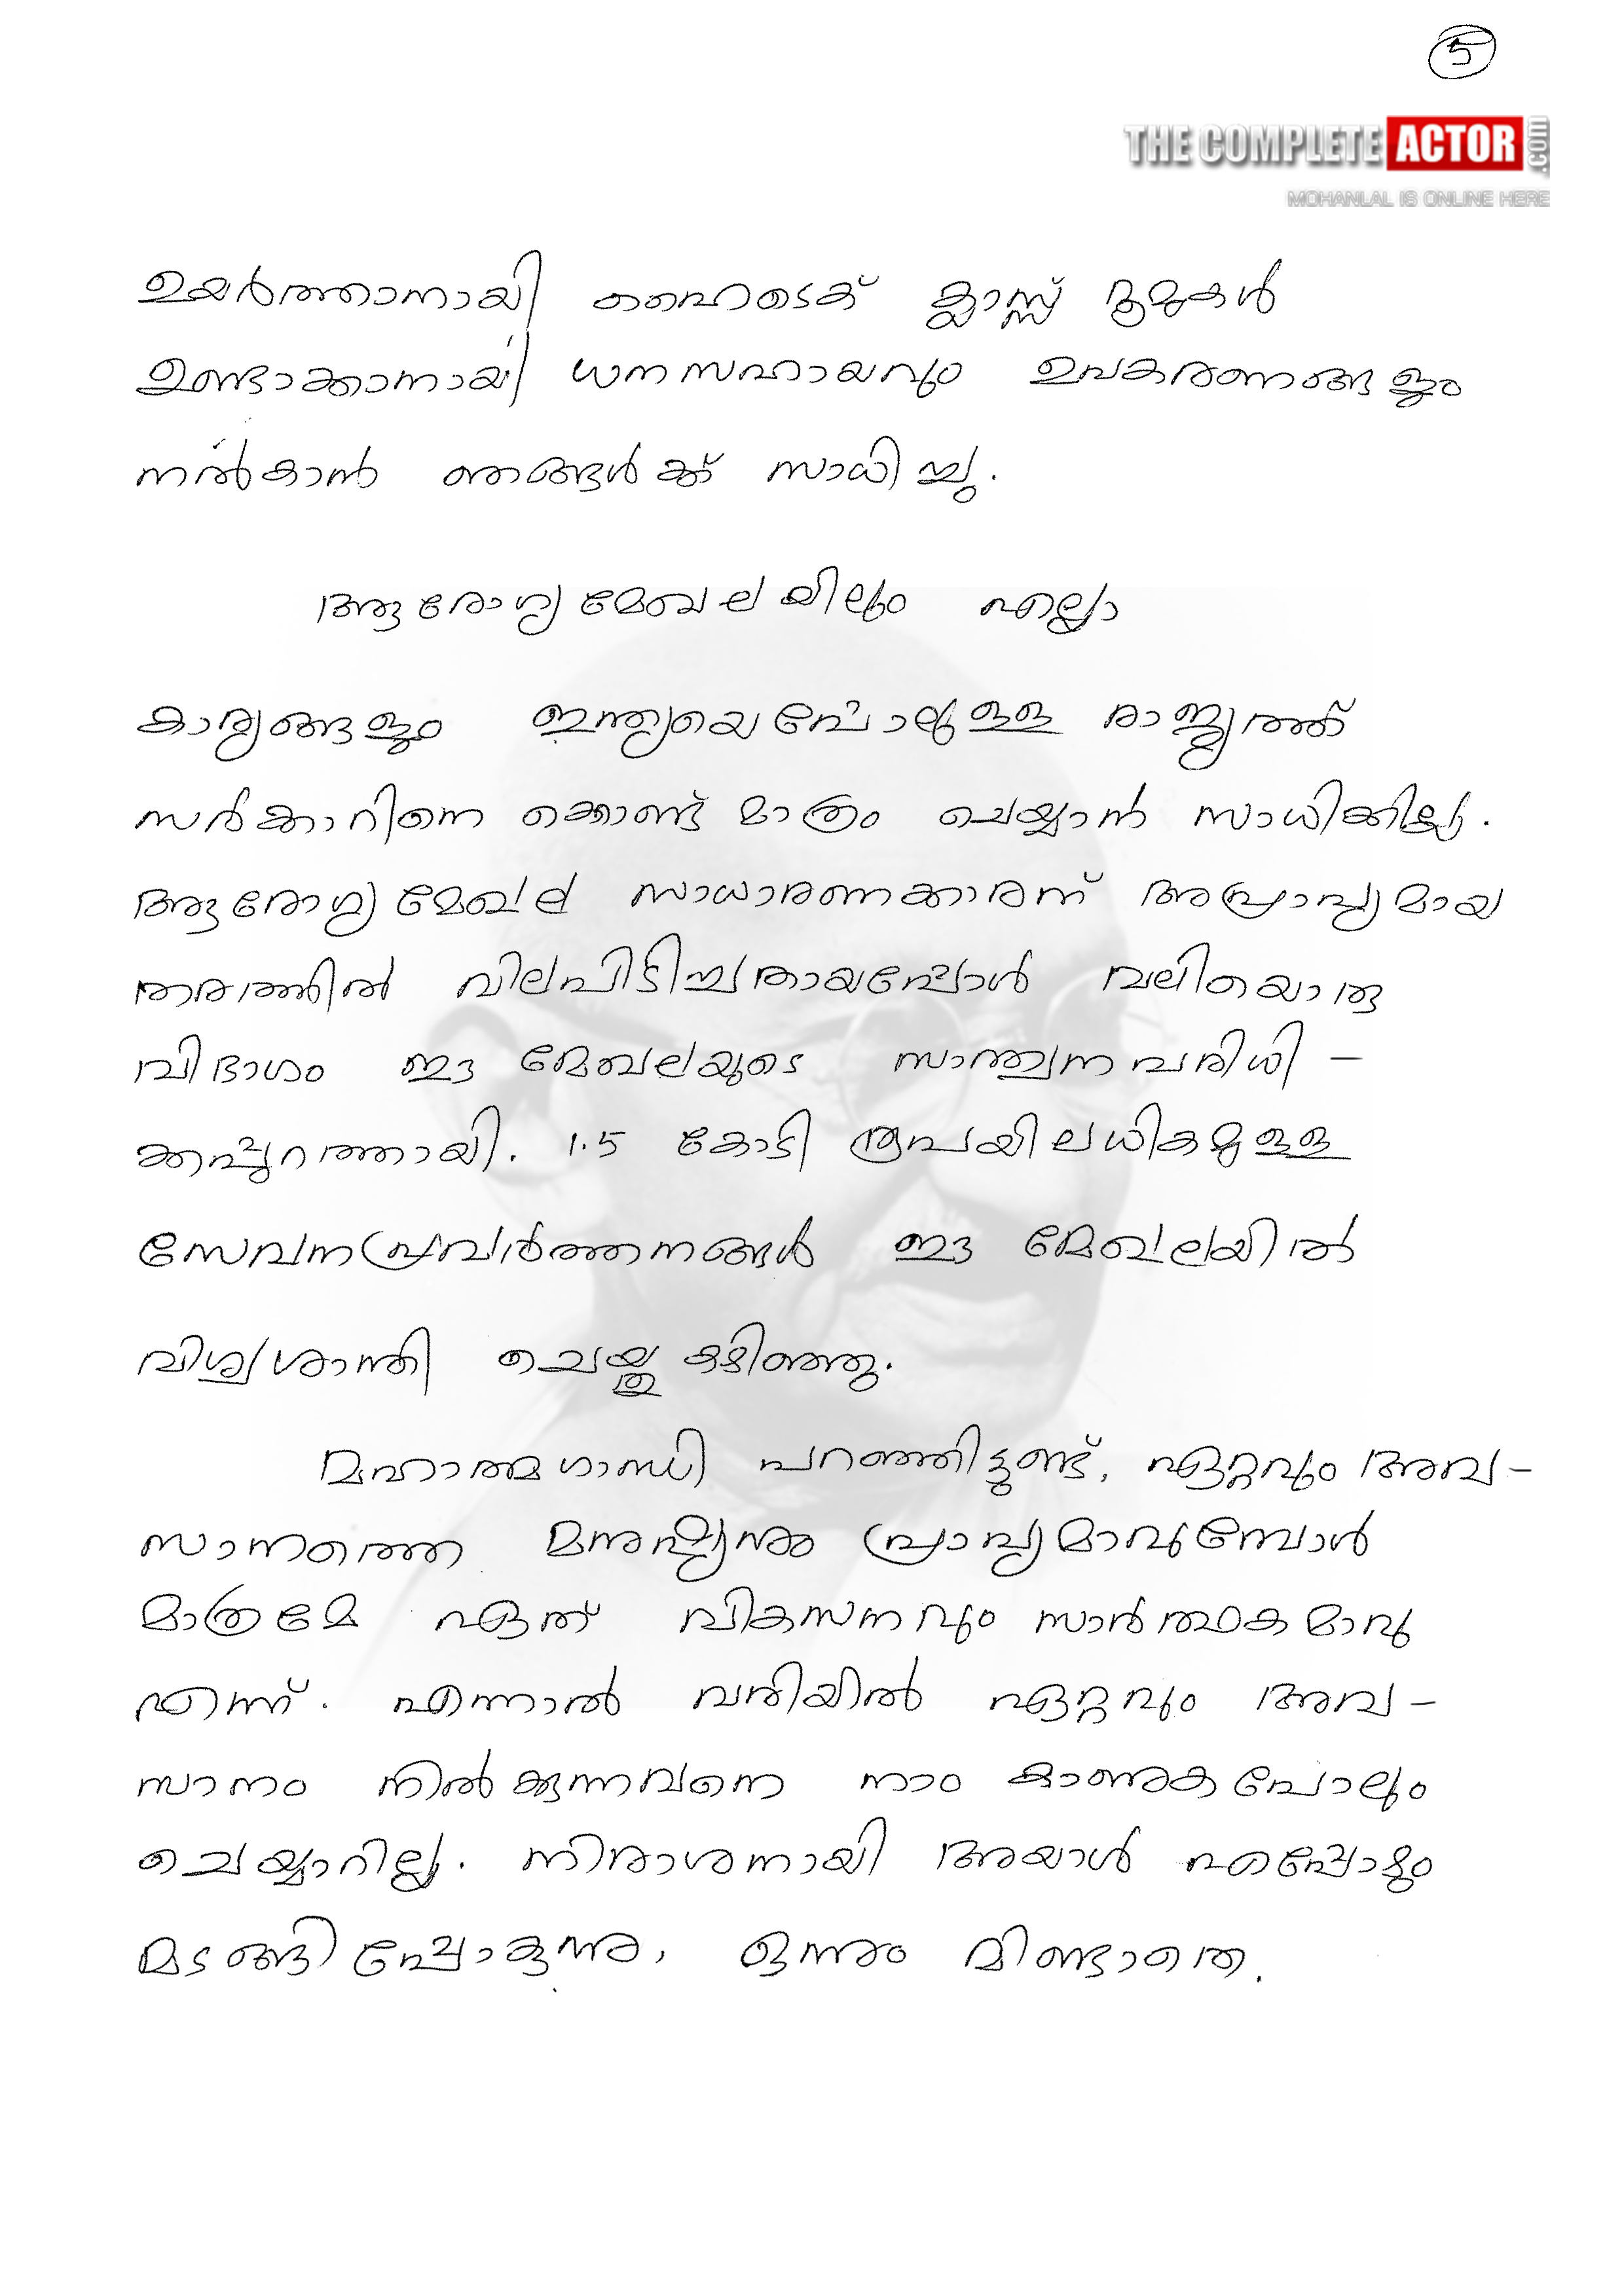 5
THE COMPLETE ACTOR .com
MOHANLAL IS ONLINE HERE
ഉയർത്താനായി ഹൈടെക് ക്ലാസ്സ് റൂമുകൾ
ഉണ്ടാക്കാനായി ധനസഹായവും ഉപകരണങ്ങളും
നൽകാൻ ഞങ്ങൾക്ക് സാധിച്ചു.
ആരോഗ്യമേഖലയിലും എല്ലാ
കാര്യങ്ങളും ഇന്ത്യയെപ്പോലുള്ള രാജ്യത്ത്
സർക്കാറിനെ ക്കൊണ്ട് മാത്രം ചെയ്യാൻ സാധിക്കില്ല.
ആരോഗ്യമേഖല സാധാരണക്കാരന് അപ്രാപ്യമായ
തരത്തിൽ വിലപിടിച്ചതായപ്പോൾ വലിയൊരു
വിഭാഗം ഈ മേഖലയുടെ സാന്ത്വനപരിധി –
ക്കപ്പുറത്തായി. 1.5 കോടി രൂപയിലധികമുള്ള
സേവനപ്രവർത്തനങ്ങൾ ഈ മേഖലയിൽ
വിശ്വശാന്തി ചെയ്തു കഴിഞ്ഞു.
മഹാത്മഗാന്ധി പറഞ്ഞിട്ടുണ്ട്, ഏറ്റവും അവ –
സാനത്തെ മനുഷ്യനും പ്രാപ്യമാവുമ്പോൾ
മാത്രമേ ഏത് വികസനവും സാർത്ഥകമാവൂ
എന്ന്. എന്നാൽ വരിയിൽ ഏറ്റവും അവ –
സാനം നിൽക്കുന്നവനെ നാം കാണുകപോലും
ചെയ്യാറില്ല. നിരാശനായി അയാൾ എപ്പോഴും
മടങ്ങിപ്പോകുന്നു, ഒന്നും മിണ്ടാതെ.